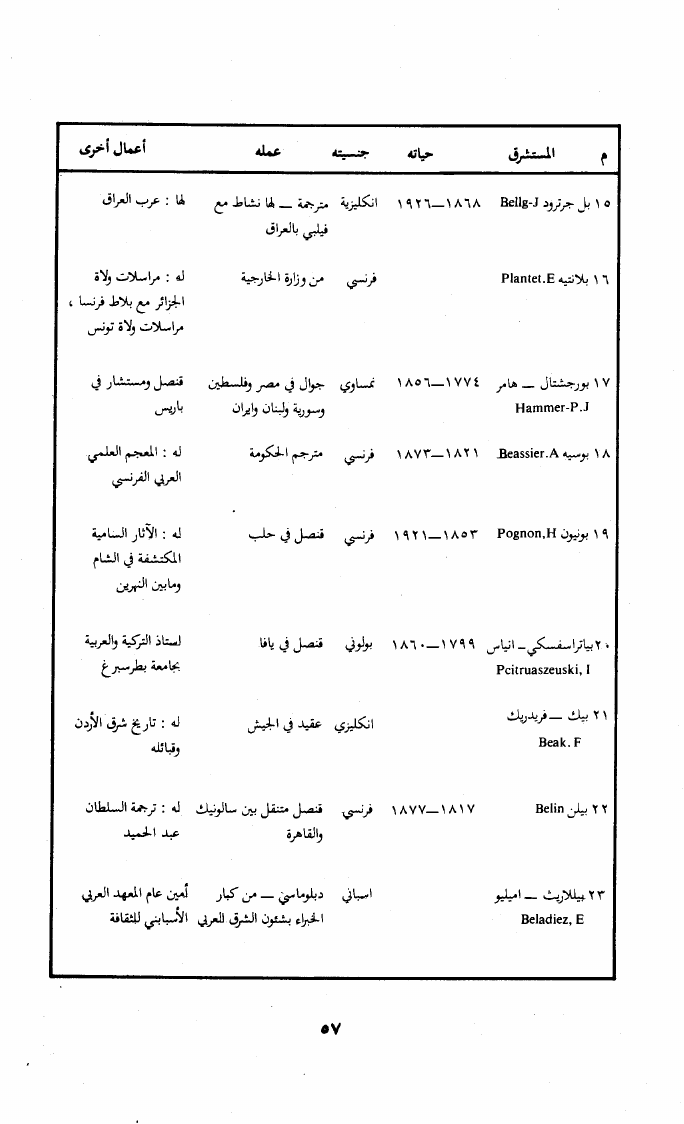 م المستشرق حياته جنسيته عمله أعمال أخرى
١٥ بل جرترود Bellg-J ١٨٦٨—١٩٢٦ انكليزية مترجمة — لها نشاط مع لها : عرب العراق
فيلبي بالعراق
١٦ بلانتيه Plantet.E فرنسي من وزارة الخارجية له : مراسلات ولاة
الجزائر مع بلاط فرنسا ،
مراسلات ولاة تونس
١٧ بورجشتال — هامر ١٧٧٤—١٨٥٦ نمساوي جوال في مصر وفلسطين قنصل ومستشار في
Hammer-P.J وسورية ولبنان وايران باريس
١٨ بوسيه Beassier.A ١٨٢١—١٨٧٣ فرنسي مترجم الحكومة له : المعجم العلمي
العربي الفرنسي
١٩ بونيون Pognon,H ١٨٥٣—١٩٢١ فرنسي قنصل في حلب له : الآثار السامية
المكتشفة في الشام
ومابين النهرين
٢٠ بياتراسفسكي – انياس ١٧٩٩—١٨٦٠ بولوني قنصل في يافا استاذ التركية والعربية
Pcitruaszeuski, I بجامعة بطرسبرغ
٢١ بيك — فريدريك انكليزي عقيد في الجيش له : تاريخ شرق الأردن
Beak. F وقبائله
٢٢ بيلن Belin ١٨١٧—١٨٧٧ فرنسي قنصل متنقل بين سالونيك له : ترجمة السلطان
والقاهرة عبد الحميد
٢٣ بيلاريث — اميليو اسباني دبلوماسي — من كبار أمين عام المعهد العربي
Beladiez, E الخبراء بشئون الشرق العربي الأسباني للثقافة
٥٧